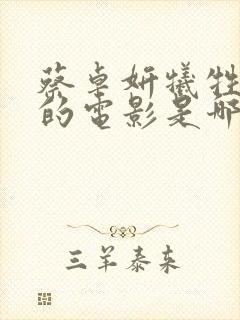 蔡卓妍犧牲
的電影是哪
三羊泰来